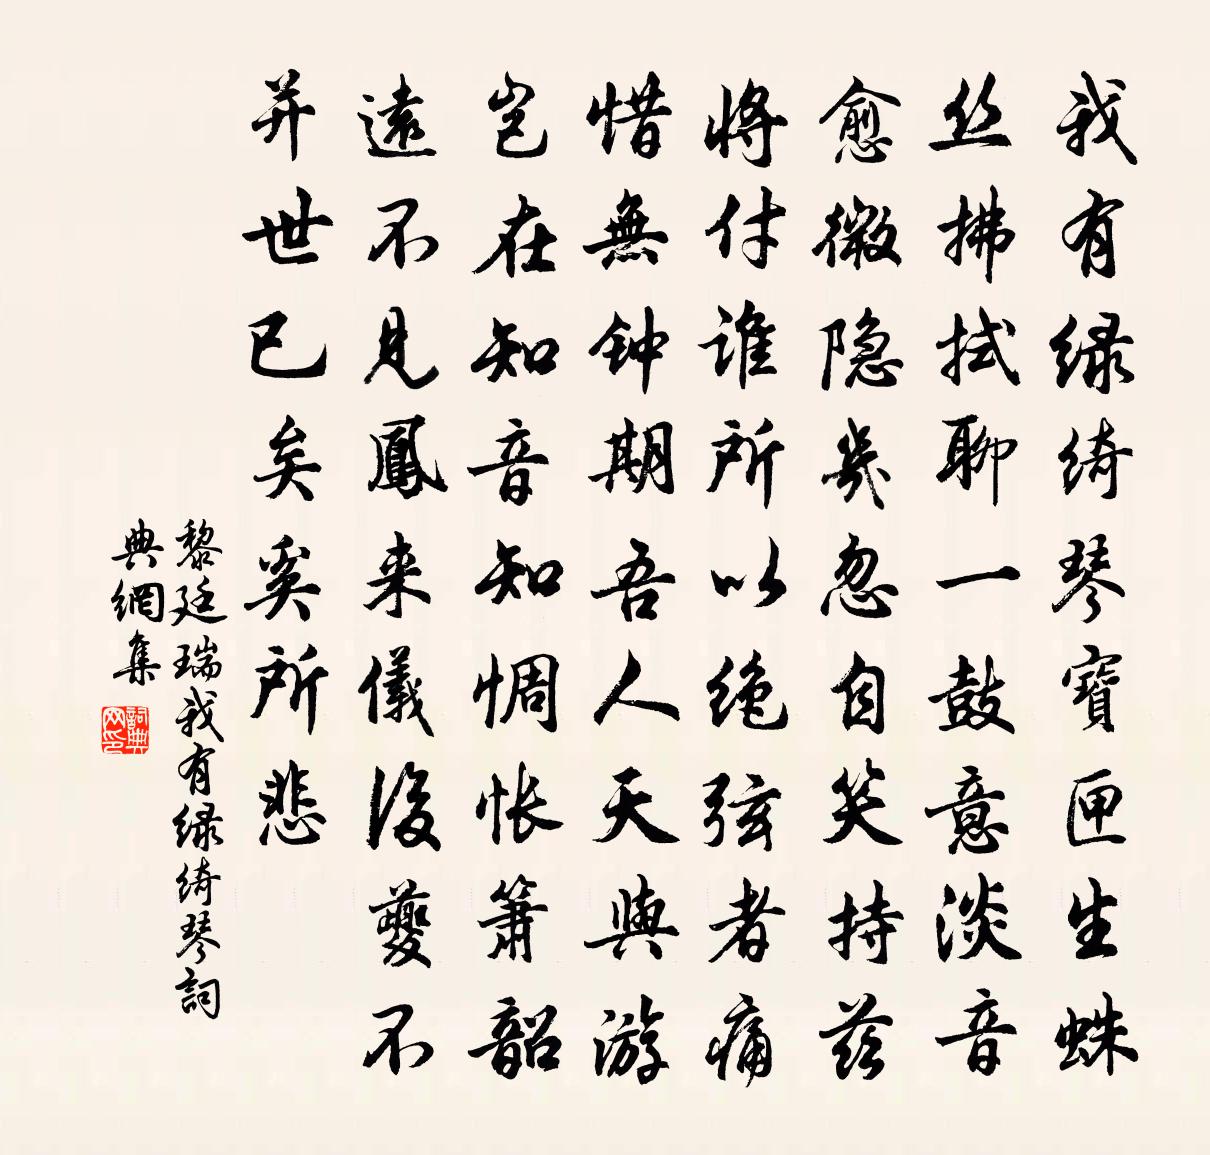 我有绿绮琴寶匣生蛛
丝拂拭聊一鼓意淡音
愈微隐几忽自笑持兹
将付谁所以绝弦者痛
惜無钟期吾人天與游
岂在知音知惆怅箫韶
遠不見鳳来儀後夔不
并世已矣奚所悲
黎廷瑞我有绿绮琴詞
典網集
詞典
网印